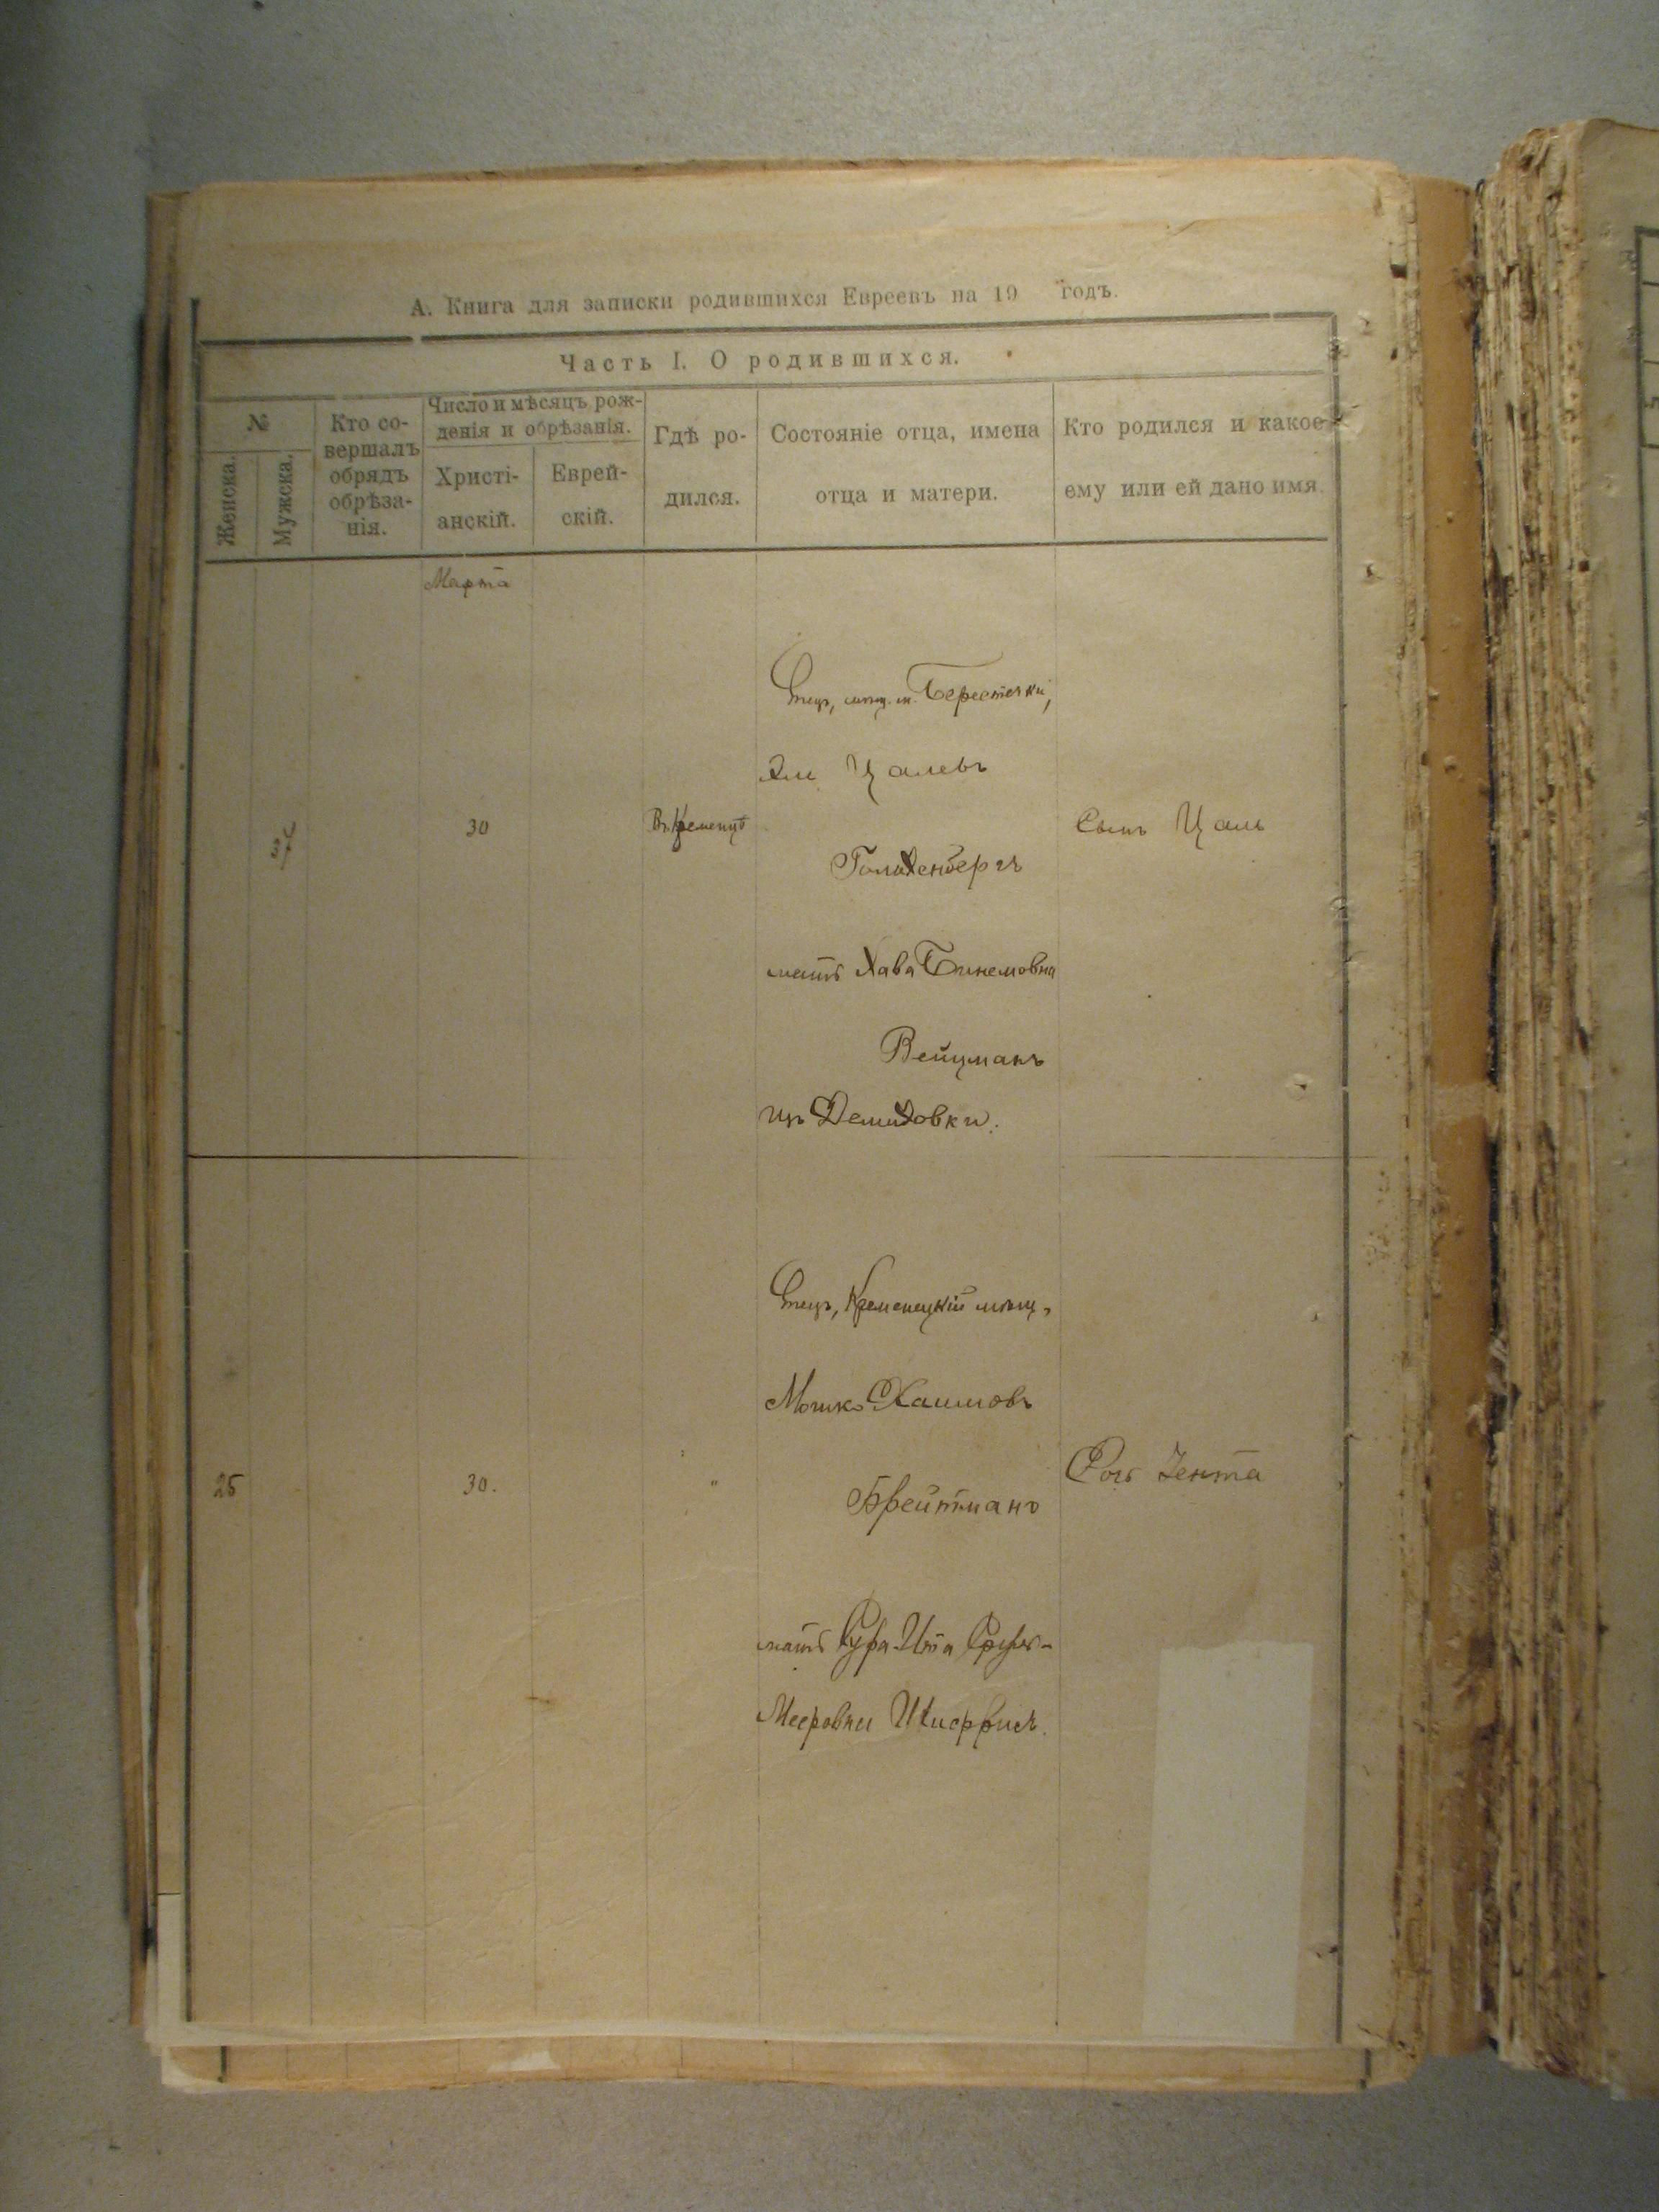 А. Книга для записки родившихся Евреевъ на 19 годъ.
Часть I. О родившихся.
№
Женска.
Мужска.
Кто со-
вершалъ
обрядъ
обрѣза-
нія.
Число и мѣсяцъ рож-
денія и обрѣзанія.
Христі-
анскій.
Еврей-
скій.
Гдѣ ро-
дился.
Состояніе отца, имена
отца и матери.
Кто родился и какое
ему или ей дано имя.
Марта
30
Въ Кременцѣ
Отецъ, мѣщ. м. Берестечки,
Эли Цалевъ
Гольденбергъ
мать Хава Бинемовна
Вейцманъ
изъ Демидовки.
Сынъ Цаль
25
30.
"
Отецъ, Кременецкій мѣщ.,
Мошко Хаимовъ
Брейтманъ
мать Сура-Ита Сруль-
Мееровна
Дочь Зента